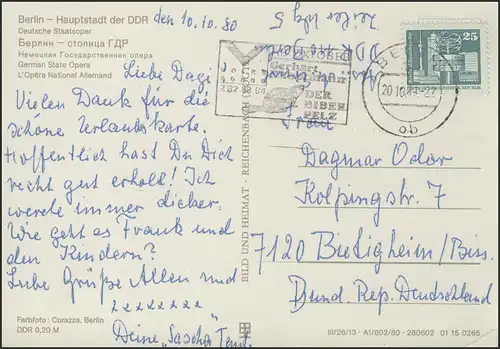 Berlin – Hauptstadt der DDR
Deutsche Staatsoper
Берлин – столица ГДР
Немецкая Государственная опера
German State Opera
L'Opéra National Allemand
den 10.10.80
Liebe Dagi
Vielen Dank für die
schöne Urlaubskarte.
Hoffentlich hast Du Dich
recht gut erholt! Ich
werde immer dicker.
Wie geht es Frank und
den Kindern?
Liebe Grüße Allen und
xxxxxxxx
Deine "Sascha"
Farbfoto: Corazza, Berlin
DDR 0,20 M
BILD UND HEIMAT · REICHENBACH (VOGTL)
OKTOBER
Gerhart
DER
BIBER
PELZ
25
BE
20.10.
ob
Frau
Dagmar Odor
Kolpingstr. 7
7120 Bietigheim/Biss.
Bund. Rep. Deutschland
III/26/13 · A1/602/80 · 280602 01 15 0265